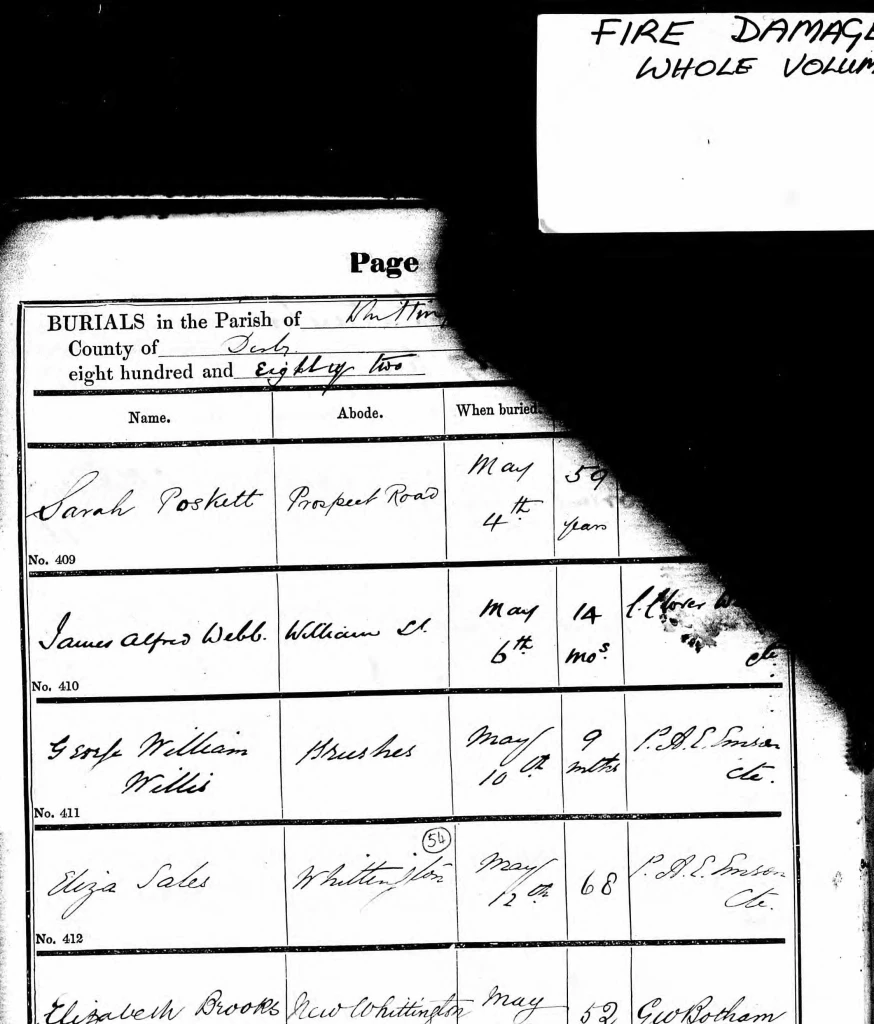 FIRE DAMAGE
WHOLE VOLUM
Page
BURIALS in the Parish of Whitting
County of Derby
eight hundred and Eighty two
Name. Abode. When buried.
Sarah Poskett Prospect Road May 4th 59 years
No. 409
James Alfred Webb. William St. May 6th 14 mos.
cte.
No. 410
George William Willis Brushes May 10th 9 mths P. A. E. Emson Cte.
No. 411
54
Eliza Sales Whittington May 12th 68 P. A. E. Emson Cte.
No. 412
Elizabeth Brooks New Whittington May 52 GW Botham